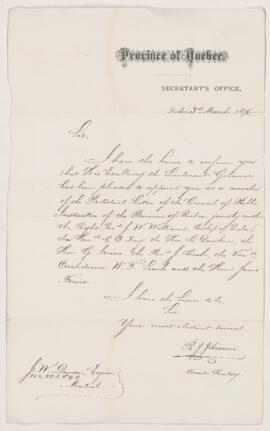 Province of Quebec.
SECRETARY'S OFFICE,
Quebec 3rd March 1876
Sir,
I have the honor to inform you
that His Excellency the Lieutenant Governor
has been pleased to appoint you as a member
of the Protestant Section of the Council of Public
Instruction of the Province of Quebec jointly with
the Right Revd J. W. Williams, Bishop of Quebec,
Hon C. D. Day the Hon G.
the Hon G. Irvine the Revd J. Cook, the Ven
Archdeacon W. Leach and the Hon James
Ferrier
I have the honor to be
Sir
Your most obedient servant
J. W. Dawson Esquire
Montreal
Secretary